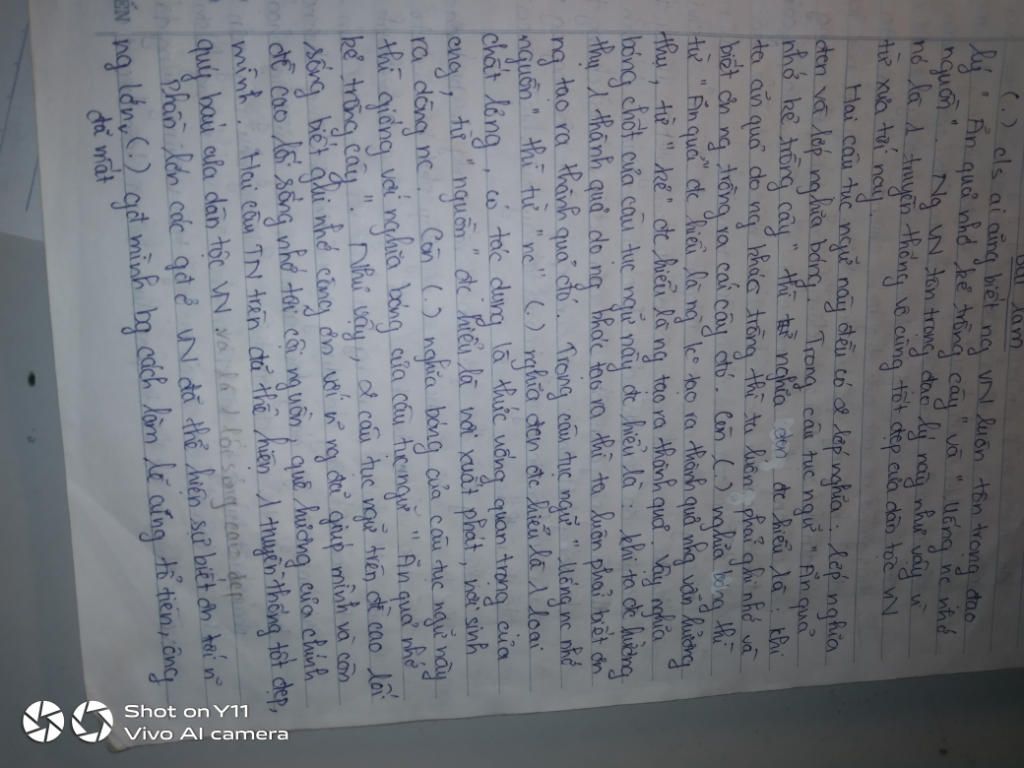 Bài làm
(.) c/s ai cũng biết ng VN luôn tôn trọng đạo
lý " Ăn quả nhớ kẻ trồng cây " và " Uống nc nhớ
nguồn ". Ng VN tôn trọng đạo lý này như vậy vì
nó là 1 truyền thống vô cùng tốt đẹp của dân tộc VN
từ xưa tới nay.
Hai câu tục ngữ này đều có 2 lớp nghĩa: lớp nghĩa
đen và lớp nghĩa bóng. Trong câu tục ngữ " Ăn quả
nhớ kẻ trồng cây " thì nghĩa đen đc hiểu là: khi
ta ăn quả do ng khác trồng thì ta luôn phải ghi nhớ và
biết ơn ng trồng ra cái cây đó. Còn (.) nghĩa bóng thì
từ " Ăn quả " đc hiểu là ng k tạo ra thành quả nhg vẫn hưởng
thụ, từ " kẻ " đc hiểu là ng tạo ra thành quả. Vậy nghĩa
bóng chốt của câu tục ngữ này đc hiểu là: khi ta đc hưởng
thụ 1 thành quả do ng khác tạo ra thì ta luôn phải biết ơn
ng tạo ra thành quả đó. Trong câu tục ngữ " Uống nc nhớ
nguồn " thì từ " nc " (.) nghĩa đen đc hiểu là 1 loại
chất lỏng, có tác dụng là thức uống quan trọng của
ng, từ " nguồn " đc hiểu là nơi xuất phát, nơi sinh
ra dòng nc. Còn (.) nghĩa bóng của câu tục ngữ này
thì giống với nghĩa bóng của câu tục ngữ " Ăn quả nhớ
kẻ trồng cây ". Như vậy, 2 câu tục ngữ trên đề cao lối
sống biết ghi nhớ công ơn với n ng đã giúp mình và còn
đề cao lối sống nhớ tới cội nguồn, quê hương của chính
mình. Hai câu TN trên đã thể hiện 1 truyền thống tốt đẹp,
quý báu của dân tộc VN và là 1 lối sống cao đẹp
Phần lớn các gđ ở VN đã thể hiện sự biết ơn tới n
ng lớn (.) gđ mình bg cách làm lễ cúng tổ tiên, ông
đã mất
Shot on Y11
Vivo AI camera